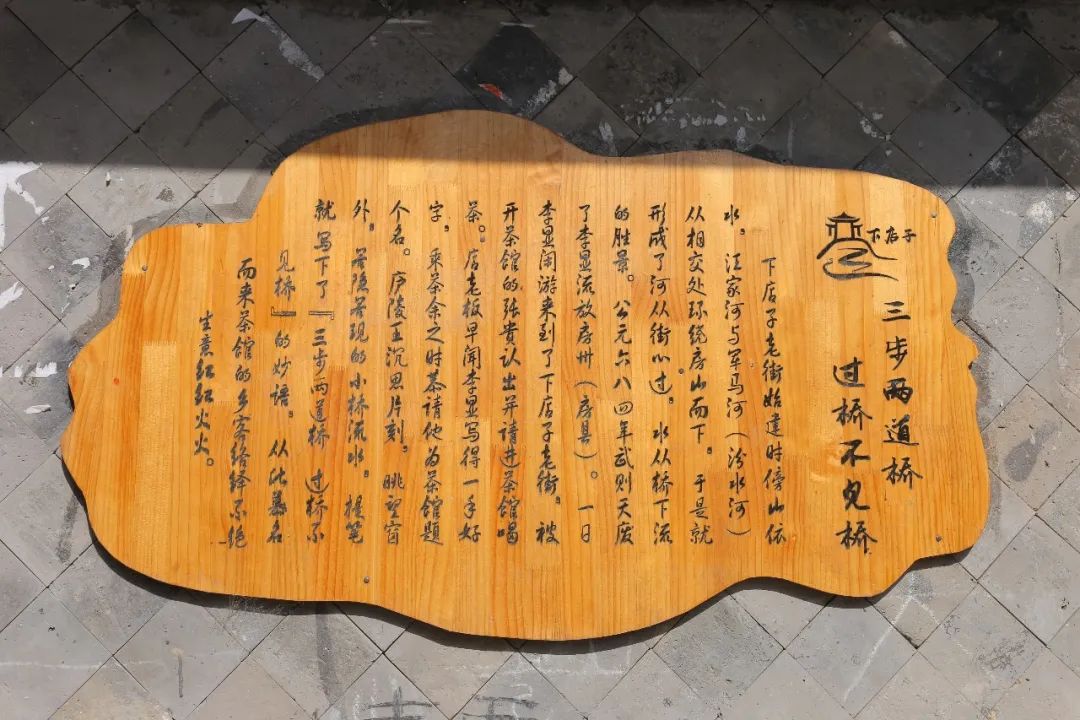 下店子
三步两道桥
过桥不见桥
下店子老街始建时傍山依
水。汪家河与军马河（汾水河）
从相交处环绕房山而下。于是就
形成了河从街心过。水从桥下流
的胜景。公元六八四年武则天废
了李显流放房州（房县）。一日
李显闲游来到了下店子老街。被
开茶馆的张贵认出并请进茶馆喝
茶。店老板早闻李显写得一手好
字。乘茶余之时恭请他为茶馆题
个名。庐陵王沉思片刻。眺望窗
外。若隐若现的小桥流水。提笔
就写下了『三步两道桥 过桥不
见桥』的妙语。从此慕名
而来茶馆的乡客络绎不绝
生意红红火火。